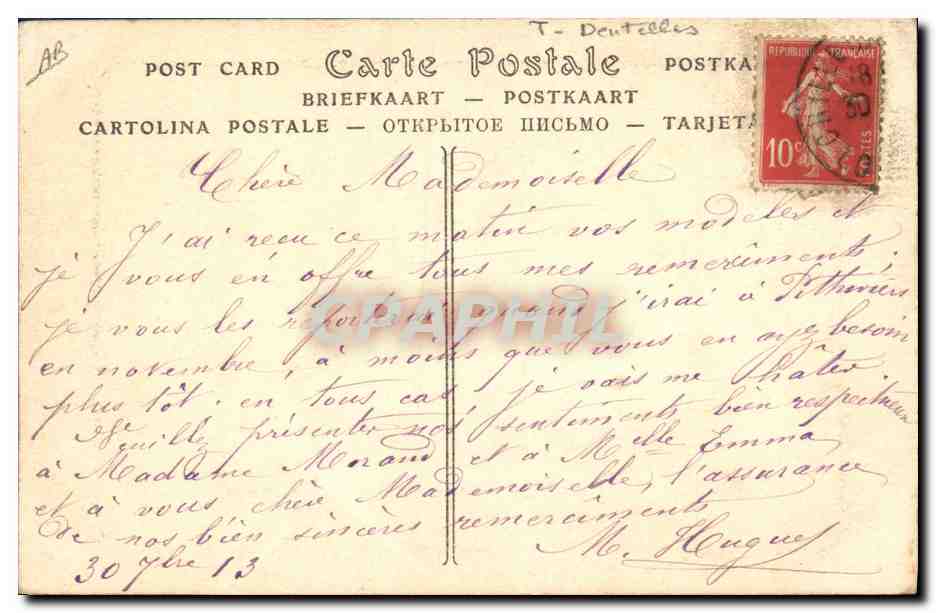 AB
T - Dentelles
POST CARD Carte Postale POSTKA
BRIEFKAART — POSTKAART
CARTOLINA POSTALE — ОТКРЫТОЕ ПИСЬМО — TARJETA
REPUBLIQUE FRANÇAISE
10c POSTES
18 30
Chère Mademoiselle
J'ai recu ce matin vos modeles et
je vous en offre tous mes remerciments;
je vous les reporterai quand j'irai à Pithiviers
en novembre, à moins que vous en ayez besoin
plus tôt. en tous cas je vais me hâter.
Veuillez présenter nos sentiments bien respectueux
à Madame Morand et à Melle Emma
et à vous chère Mademoiselle, l'assurance
de nos bien sincères remerciments
M. Hugues
30 7bre 13
CPAPHIL